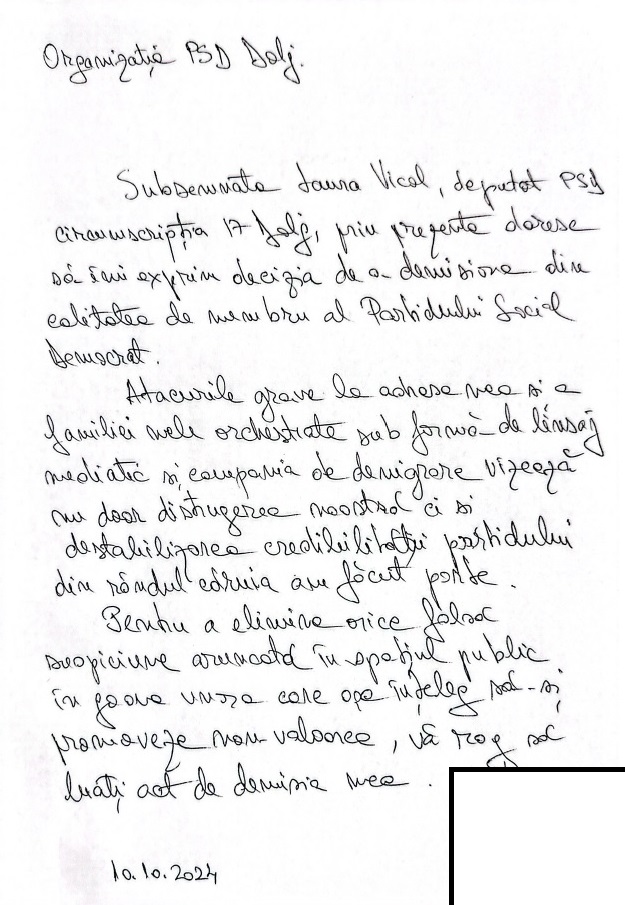 Organizația PSD Dolj.
Subsemnata Laura Vicol, deputat PSD
circumscripția 17 Dolj, prin prezenta doresc
să îmi exprim decizia de a demisiona din
calitatea de membru al Partidului Social
Democrat.
Atacurile grave la adresa mea si a
familiei mele orchestrate sub formă de linsaj
mediatic și campania de denigrare vizează
nu doar distrugerea noastră ci si
destabilizarea credibilității partidului
din rândul căruia am făcut parte.
Pentru a elimina orice falsă
suspiciune aruncată în spațiul public
în goana unora care așa înțeleg să-și
promoveze non-valoarea, vă rog să
luați act de demisia mea.
10.10.2024